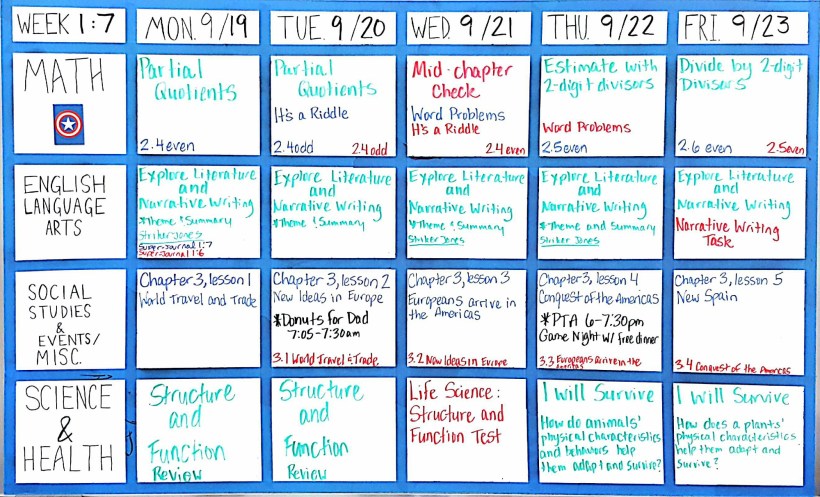 WEEK 1:7
MON. 9/19
TUE. 9/20
WED. 9/21
THU. 9/22
FRI. 9/23
MATH
Partial
Quotients
2.4 even
Partial
Quotients
It's a Riddle
2.4 odd
2.4 odd
Mid-chapter
Check
Word Problems
It's a Riddle
2.4 even
Estimate with
2-digit divisors
Word Problems
2.5 even
Divide by 2-digit
Divisors
2.6 even
2.5 even
ENGLISH
LANGUAGE
ARTS
Explore Literature
and
Narrative Writing
*Theme & Summary
Striker Jones
Super-Journal 1:7
Super-Journal 1:6
Explore Literature
and
Narrative Writing
*Theme & Summary
Explore Literature
and
Narrative Writing
*Theme & Summary
Striker Jones
Explore Literature
and
Narrative Writing
*Theme and Summary
Striker Jones
Explore Literature
and
Narrative Writing
Narrative Writing
Task
SOCIAL
STUDIES
&
EVENTS/
MISC.
Chapter 3, lesson 1
World Travel and Trade
Chapter 3, lesson 2
New Ideas in Europe
*Donuts for Dad
7:05-7:30am
3.1 World Travel & Trade
Chapter 3, lesson 3
Europeans arrive in
the Americas
3.2 New Ideas in Europe
Chapter 3, lesson 4
Conquest of the Americas
*PTA 6-7:30pm
Game Night w/ free dinner
3.3 Europeans Arrive in the
Americas
Chapter 3, lesson 5
New Spain
3.4 Conquest of the Americas
SCIENCE
&
HEALTH
Structure
and
Function
Review
Structure
and
Function
Review
Life Science:
Structure and
Function Test
I Will Survive
How do animals'
physical characteristics
and behaviors help
them adapt and survive?
I Will Survive
How does a plants'
physical characteristics
help them adapt and
survive?